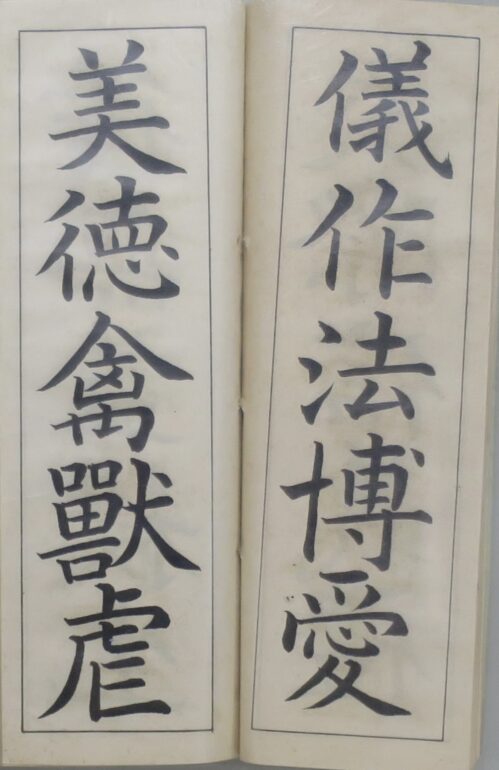 儀作法博愛
美徳禽獸虐